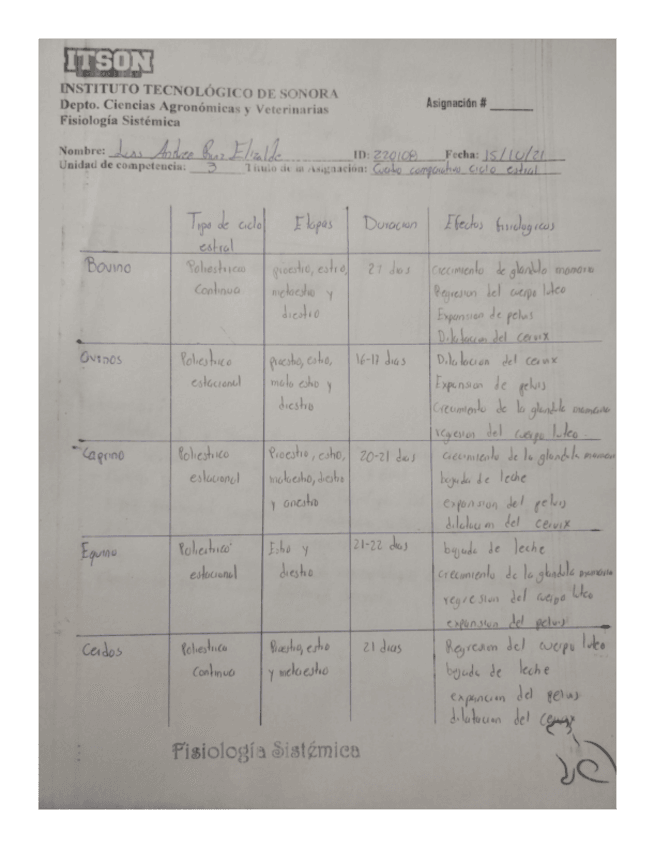 ITSON
INSTITUTO TECNOLÓGICO DE SONORA
Depto. Ciencias Agronómicas y Veterinarias
Asignación # ______
Fisiología Sistémica
Nombre: Luis Andres Elizalde
ID: 220108 Fecha: 15/10/21
Unidad de competencia: 3 Título de la Asignación: Cuadro comparativo ciclo estral
Tipo de ciclo estral
Etapas
Duracion
Efectos fisiologicos
Bovino
Poliestrico
Continuo
proestro, estro,
metaestro y
diestro
21 dias
Crecimiento de glandula mamaria
Regresion del cuerpo luteo
Expansion de pelvis
Dilatacion del cervix
Ovinos
Poliestrico
estacional
proestro, estro,
meta estro y
diestro
16-17 dias
Dilatacion del cervix
Expansion de pelvis
Crecimiento de la glandula mamaria
regresion del cuerpo luteo
Caprino
Poliestrico
estacional
Proestro, estro,
metaestro, diestro
y anestro
20-21 dias
crecimiento de la glandula mamaria
bajada de leche
expansion del pelvis
dilatacion del cervix
Equino
Poliestrico
estacional
Estro y
diestro
21-22 dias
bajada de leche
crecimiento de la glandula mamaria
regresion del cuerpo luteo
expansion del pelvis
Cerdos
Poliestrico
Continuo
Proestro, estro
y metaestro
21 dias
Regresion del cuerpo luteo
bajada de leche
expancion del pelvis
dilatacion del cervix
Fisiología Sistémica